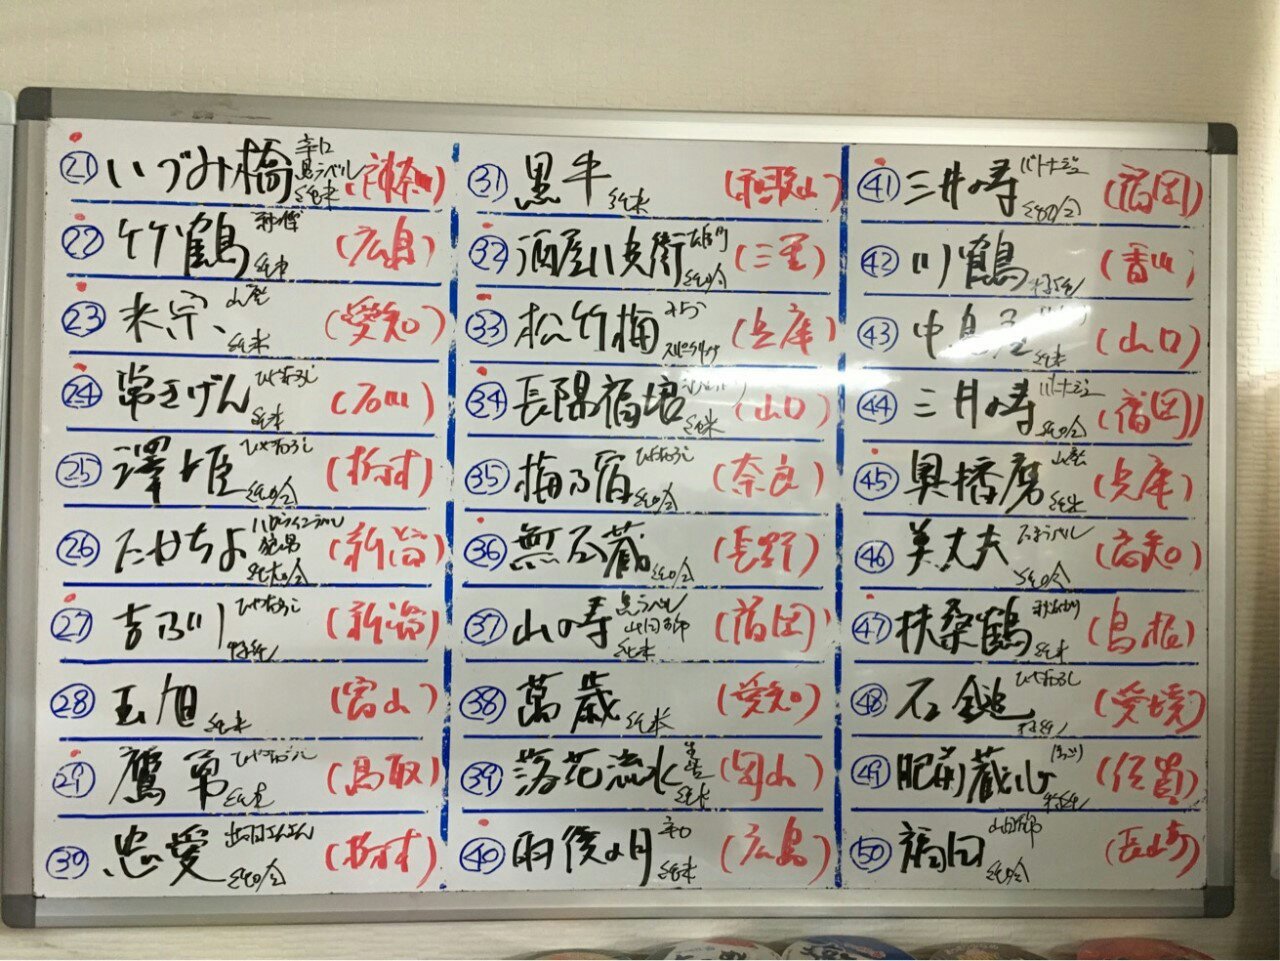 21 いづみ橋 辛口 黒ラベル 純米 (神奈川)
22 竹鶴 秘傳 純米 (広島)
23 米宗 山廃 純米 (愛知)
24 常きげん ひやおろし 純米 (石川)
25 澤姫 ひやおろし 純吟 (栃木)
26 たかちよ ハロウィンラベル 純大吟 (新潟)
27 吉乃川 ひやおろし 特純 (新潟)
28 玉旭 純米 (富山)
29 鷹勇 ひやおろし 純米 (鳥取)
30 忠愛 純吟 (栃木)
31 黒牛 純米 (和歌山)
32 酒屋八兵衛 純吟 (三重)
33 松竹梅 みお スパークリング (兵庫)
34 長陽福娘 純米 (山口)
35 梅乃宿 ひやおろし 純吟 (奈良)
36 無尽蔵 純吟 (長野)
37 山の寿 黒ラベル 山田錦 純米 (福岡)
38 萬歳 純米 (愛知)
39 落花流水 純米 (岡山)
40 雨後の月 辛口 純米 (広島)
41 三井の寿 バトナージュ 純吟 (福岡)
42 川鶴 特純 (香川)
43 中島屋 純米 (山口)
44 三井の寿 バトナージュ 純吟 (福岡)
45 奥播磨 山廃 純米 (兵庫)
46 美丈夫 純吟 (高知)
47 扶桑鶴 純米 (島根)
48 石鎚 ひやおろし 特純 (愛媛)
49 肥前蔵心 特純 (佐賀)
50 福田 山田錦 純吟 (長崎)